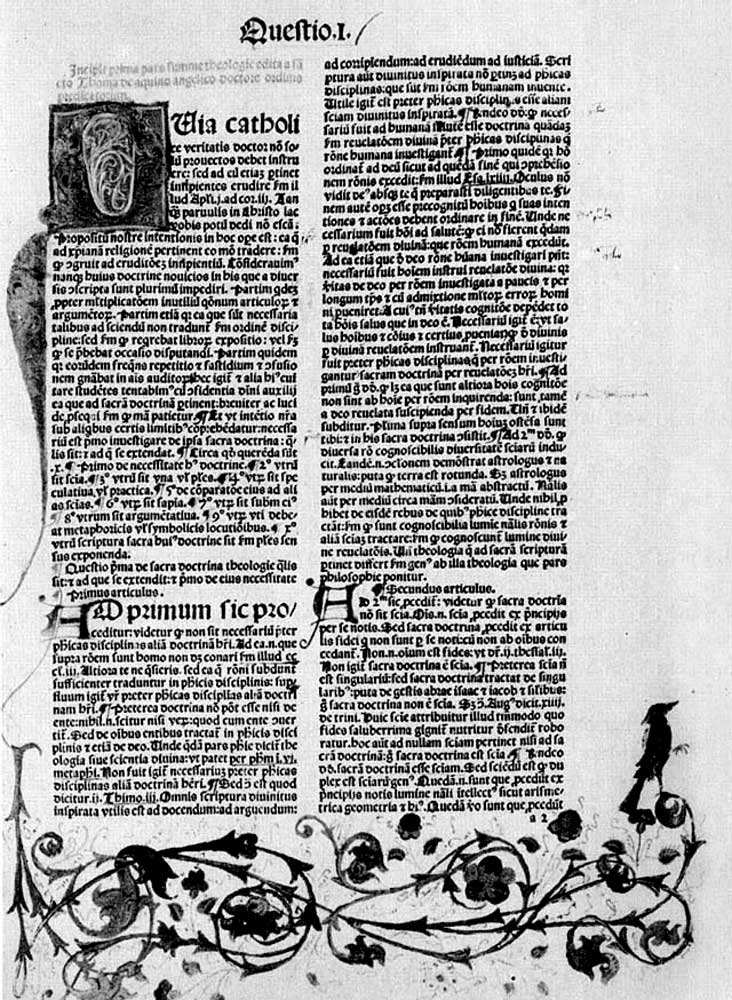 Questio.I.
Incipit prima pars summe theologie edita a sā
cto Thoma de aquino angelico doctore ordinis
predicatorum.
QUia catholi
ce veritatis doctor nō so
lū prouectos debet instru
ere: sed ad eū etiaʒ ptinet
insipientes erudire fm il
lud Apli.j.ad cor.iij. Tan
quā paruulis in Christo lac
vobis potū dedi nō escā:
Propositū nostre intentionis in hoc ope est: ea q̄
ad xpianā religionē pertinent eo mō tradere: fm
ꝙ ꝯgruit ad eruditōeʒ insipientiū. Cōsiderauim⁹
nanqʒ huius doctrine nouicios in his que a diuer
sis scripta sunt plurimū impediri. Partim qdeʒ
ꝓpter mltiplicatōem inutiliū qōnum articuloꝝ ⁊
argumētoꝝ. Partim etiā qꝛ ea que sūt necessaria
talibus ad sciendū non tradunt fm ordinē disci
pline: sed fm ꝙ reqrebat libroꝝ expositio: vel fʒ
ꝙ se p̄bebat occasio disputandi. Partim quidem
qꝛ eorūdem freqns repetitio ⁊ fastidium ⁊ ꝯfusio
nem gnābat in aīs auditoꝝ. Hec igit ⁊ alia hi⁹cui
tare studētes tentabim⁹ cū ꝯfidentia dīni auxilij
ea que ad sacrā doctrinā ptinent: breuiter ac luci
de ꝓseqi: fm ꝙ mā patietur. ¶ Et vt intētio nra
sub aligbus certis limitib⁹ cōprehēdatur: necessa
riū est pmo inuestigare de ipsa sacra doctrina: q̄
lis sit: ⁊ ad q̄ se extendat. ¶ Circa qd querēda sūt
.x. ¶ Primo de necessitate h⁹ doctrine. ¶ 2° vtrū
sit scia. ¶ 3° vtrū sit vna vl ples. ¶ 4° vtꝝ sit spe
culatiua vl practica. ¶ 5° de cōparatōe eius ad ali
as scias. ¶ 6° vtꝝ sit sapia. ¶ 7° vtꝝ sit subm ei⁹
¶ 8° vtrum sit argumētatiua. ¶ 9° vtꝝ vti debe
at metaphoricis vl symbolicis locutiōibus. ¶ x°
vtrū scriptura sacra hui⁹ doctrine sit fm ples sen
sus exponenda.
Questio pma de sacra doctrina theologie qlis
sit: ⁊ ad que se extendit: ⁊ pmo de eius necessitate
Primus articulus.
AD primum sic pro/
ceditur: videtur ꝙ non sit necessariū p̄ter
phicas disciplinas aliā doctrinā hri. Ad ea.n.que
supra rōem sunt homo non dʒ conari fm illud ec
cl.iij. Altiora te ne q̄sieris. sed ea q̄ rōni subdunt
sufficienter traduntur in phicis disciplinis: supfl
fluum igit vr preter phicas disciplias aliā doctri
nam hri. ¶ Preterea doctrina nō pōt esse nisi de
ente: nihil.n.scitur nisi veꝝ: quod cum ente ꝯuer
tit. Sed de oibus entibus tractat in phicis disci
plinis ⁊ etiā de deo. Unde qdā pars phie dicit the
ologia siue scientia diuina: vt patet per phm i.vi.
metaphi. Non fuit igit necessariuʒ preter phicas
disciplinas aliā doctrinā hēri. ¶ Sed ꝯ est quod
dicitur.ij. Thimo.iii. Omnis scriptura diuinitus
inspirata vtilis est ad docendum: ad arguendum:
ad corripiendum: ad erudiēdum ad iusticiā. Scri
ptura aūt diuinitus inspirata nō ptinʒ ad phicas
disciplinas: que sūt fm rōem humanam inuente.
Utile igit est preter phicas discipliās esse aliam
sciam diuinitus inspiratā. ¶ Rndeo dd. ꝙ neces
sariū fuit ad humanā salutē esse doctrinā quādaʒ
fm reuelatōem diuinā p̄ter phicas disciplinas q̄
rōne humana inuestigant. ¶ Primo quidē qꝛ hō
ordinat ad deū sicut ad quēdā finē qui ꝯprehēsio
nem rōnis excedit: fm illud Esa.lxiiij. Oculus nō
vidit de⁹ absqʒ te q̄ preparasti diligentibus te. Fi
nem autē opʒ esse precognitū hoibus q̄ suas inten
tiones ⁊ actōes debent ordinare in finē. Unde ne
cessarium fuit hōi ad salutē: ꝙ ei nō fierent qdam
p reuelatōem diuinā: que rōem humanā excedūt.
Ad ea etiā que d̄ deo rōne huana inuestigari pnt:
necessariū fuit hoiem instrui reuelatōe diuina: qꝛ
v̄itas de deo per rōem inuestigata a paucis ⁊ per
longum tps ⁊ cū admixtione mltoꝝ erroꝝ homi
ni pueniret. A cui⁹ tn̄ v̄itatis cognitōe depēdet to
ta hōis salus que in deo ē. Necessariū igit ē: vt sa
lus hoibus ⁊ cōius ⁊ certius pueniat ꝙ d̄ diuinis
p diuinā reuelatōem instruant. Necessariū igitur
fuit preter phicas disciplinas q̄ per rōem inuesti
gantur: sacram doctrinā per reuelatōeʒ hri. ¶ Ad
primū ḡ dd. ꝙ lʒ ea que sunt altiora hōis cognitōe
non sint ab hoie per rōem inquirenda: sunt tamē
a deo reuelata suscipienda per fidem. Un̄ ⁊ ibidē
subditur. Pluria supra sensum hoiuʒ ostēsa sunt
tibi: ⁊ in his sacra doctrina ꝯsistit. ¶ Ad 2ᵐ dd. ꝙ
diuersa rō cognoscibilis diuersitatē sciarū indu
cit. Eandē.n.ꝯclonem demōstrat astrologus ⁊ na
turalis: puta ꝙ terra est rotunda. Sʒ astrologus
per mediū mathematicū.i.a mā abstractū. Nālis
aūt per mediū circa mām ꝯsideratū. Unde nihil p
hibet de eisdē rebus de quib⁹ phice discipline tra
ctāt: fm ꝙ sunt cognoscibilia lumie nālis rōnis ⁊
aliā sciaʒ tractare: fm ꝙ cognoscunt lumine diui
ne reuelatōis. Un̄ theologia q̄ ad sacrā scripturā
ptinet differt fm gen⁹ ab illa theologia que pars
philosophie ponitur.
¶ Secundus articulus.
AD 2ᵐ sic ꝓcedit: videtur ꝙ sacra doctrina
nō sit scia. Ois.n. scia ꝓcedit ex p̄ncipijs
per se notis. Sed sacra doctrina ꝓcedit ex articu
lis fidei q̄ non sunt p se noti: cū non ab oibus con
cedant. Non.n.oium est fides: vt dr.ij.thessal.iij.
Non igit sacra doctrina ē scia. ¶ Preterea scia n̄
est singulariū: sed sacra doctrina tractat de singu
larib⁹: puta de gestis abrae isaac ⁊ iacob ⁊ silibus:
ḡ sacra doctrina non ē scia. Sʒ ꝯ. Aug⁹ dicit.xiiij.
de trini. Huic scie attribuitur illud tmmodo quo
fides saluberrima gignit̄ nutritur dēfendit̄ robo
ratur. hoc aūt ad nullam sciam pertinet nisi ad sa
crā doctrinā: ḡ sacra doctrina est scia. ¶ Rndeo
dd. sacrā doctrinā esse sciam. Sed sciēdū est ꝙ du
plex est sciarū gen⁹. Quedā.n.sunt que ꝓcedūt ex
p̄ncipijs notis lumine nāli itellect⁹ sicut arisme
trica geometria ⁊ hi⁹. Quedā v̄o sunt que ꝓcedūt
a 2